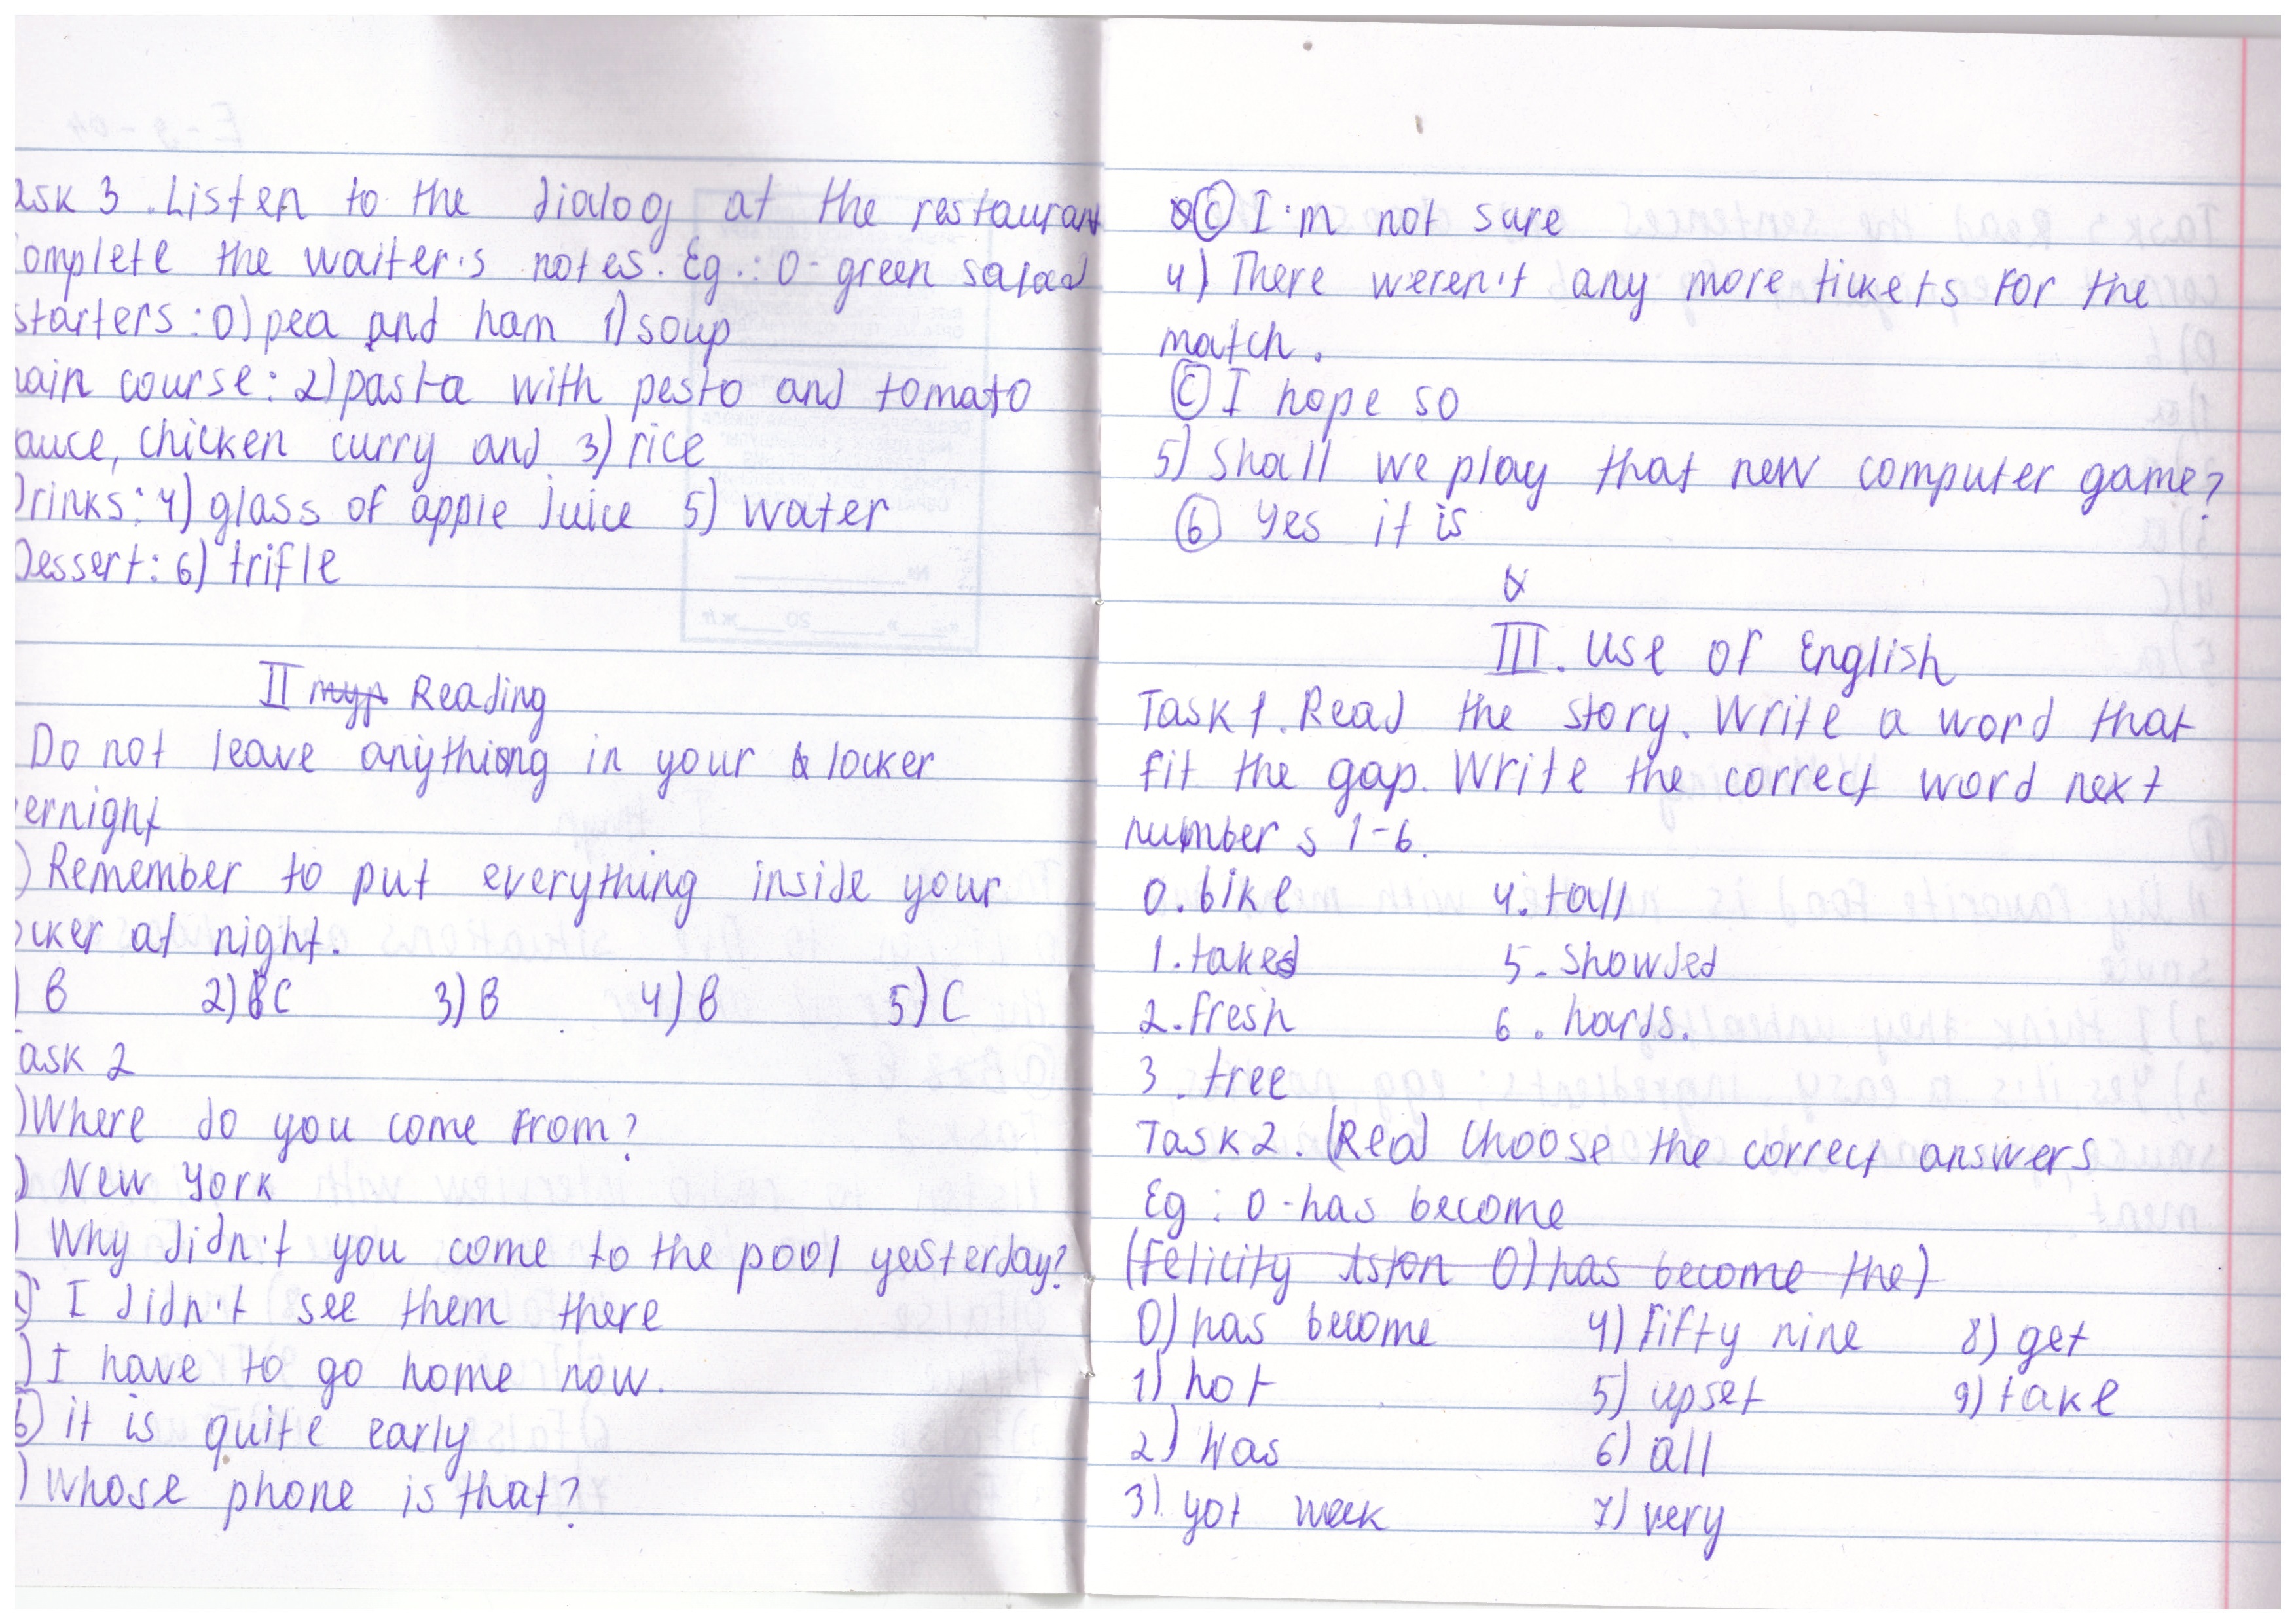 ask 3. Listen to the dialog at the restaurant
omplete the waiter's notes. Eg.: 0- green salad
starters: 0) pea and ham 1) soup
ain course: 2) pasta with pesto and tomato
auce, chicken curry and 3) rice
Drinks: 4) glass of apple juice 5) water
Dessert: 6) trifle
II Reading
Do not leave anything in your locker
ernight
) Remember to put everything inside your
ocker at night.
) B 2) C 3) B 4) B 5) C
ask 2
) Where do you come from?
) New York
) Why didn't you come to the pool yesterday?
a) I didn't see them there
) I have to go home now.
b) it is quite early
) whose phone is that?
c) I'm not sure
4) There weren't any more tickets for the
match.
c) I hope so
5) Shall we play that new computer game?
b) Yes it is
III. Use of English
Task 1. Read the story. Write a word that
fit the gap. Write the correct word next
numbers 1-6.
0. bike 4. tall
1. taked 5. showded
2. fresh 6. hards.
3. tree
Task 2. (Read Choose the correct answers
Eg: 0-has become
(Felicity Aston 0) has become the)
0) has become 4) fifty nine 8) get
1) hot 5) upset 9) take
2) was 6) all
3) yot week 7) very